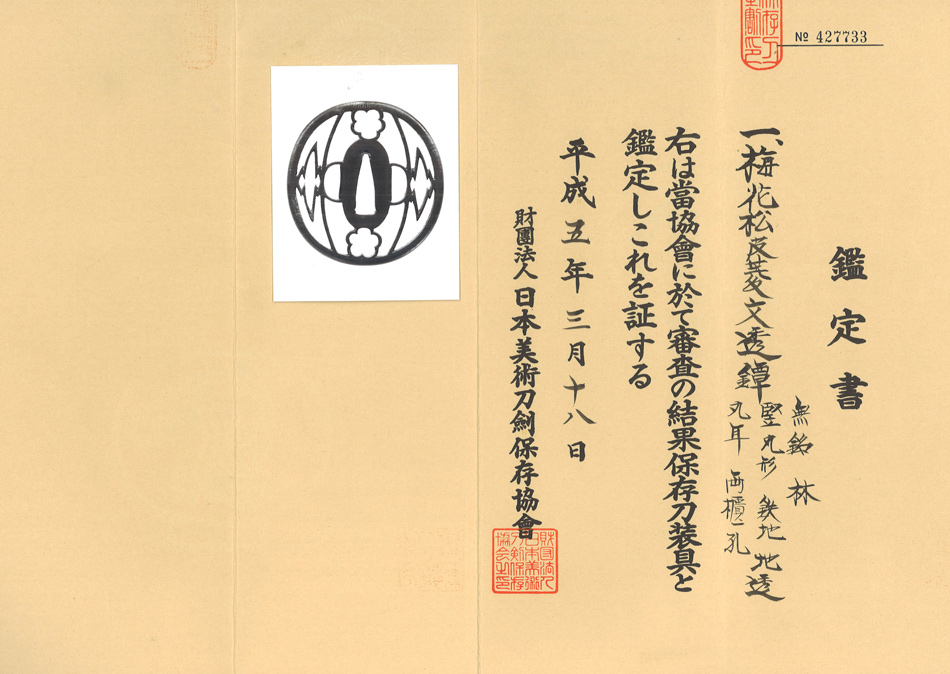 № 427733
鑑定書
一、梅花松皮菱文透鐔
無銘 林
竪丸形 鉄地 地透
丸耳 両櫃孔
右は當協會に於て審査の結果保存刀装具と
鑑定しこれを証する
平成五年三月十八日
財團法人 日本美術刀劍保存協會